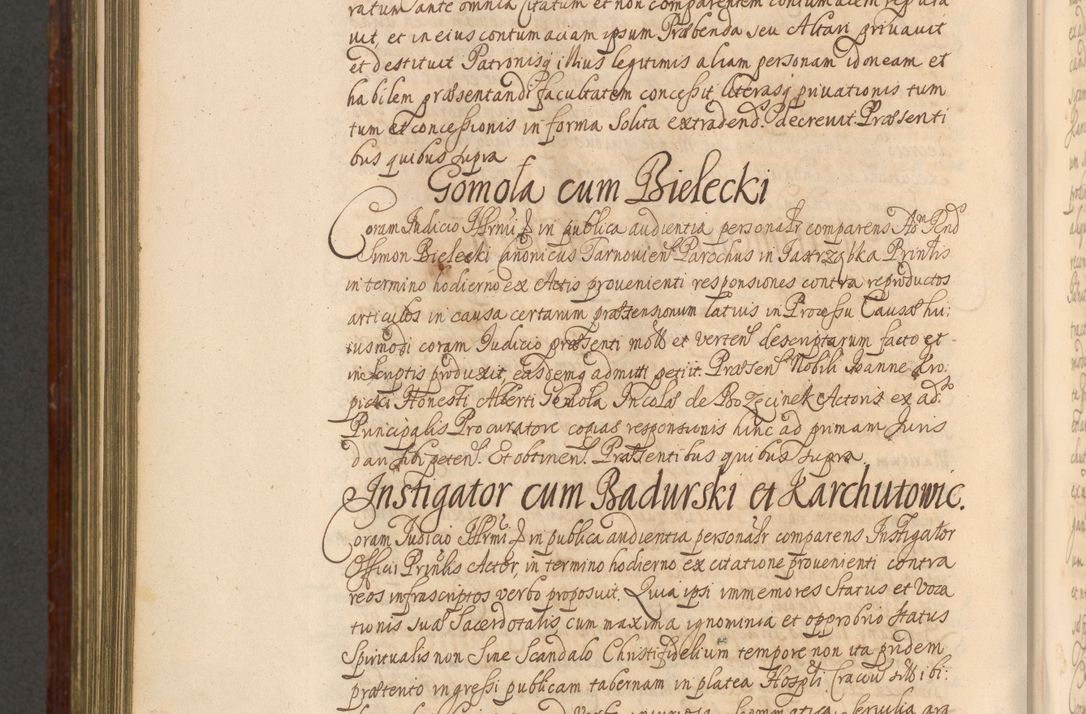 ratum ante omnia Citatum et non comparentem contumacem reputa
uit, et in eius contumaciam ipsum Præbenda seu Altari priuauit
et destituit Patronisq illius legitimis aliam personam idoneam et
habilem præsentandi facultatem concessit literasq priuationis tum
tum et concessionis in forma solita extradend. decreuit Præsenti
bus quibus supra
Gomola cum Bielecki
Coram Iudicio Illrmi in publica audientia personalr comparens Adn Rnd
Simon Bielecki Canonicus Tarnouien Parochus in Jastrząbka Prinlis
in termino hodierno ex Actis prouenienti responsiones contra reproductos
articulos in causa certarum prætensionum latius in Processu Causæ hu:
iusmodi coram Iudicio præsenti mott et verten descriptarum facto et
in scriptis produxit, easdemq admitti petiit. Præsen Nobili Ioanne Kro
picki Honesti Alberti Gomola Incolæ de Bozęcinek Actoris ex ad
Principalis Procuratore copias responsionis hinc ad primam Juris
dari sibi peten. Et obtinen. Præsentibus quibus supra.
Instigator cum Badurski et Karchutowic.
Coram Iudicio Illrmi in publica audientia personalr comparens Instigator
Officii Prinlis Actor, in termino hodierno ex citatione prouenienti contra
reos infrascriptos verbo proposuit. Quia ipsi immemores Status et Voca
tionis suæ Sacerdotalis cum maxima ignominia et opprobrio Status
Spiritualis non sine Scandalo Christifidelium tempore non ita pridem
præterito ingressi publicam tabernam in platea Hospli Cracou sitt ibi: